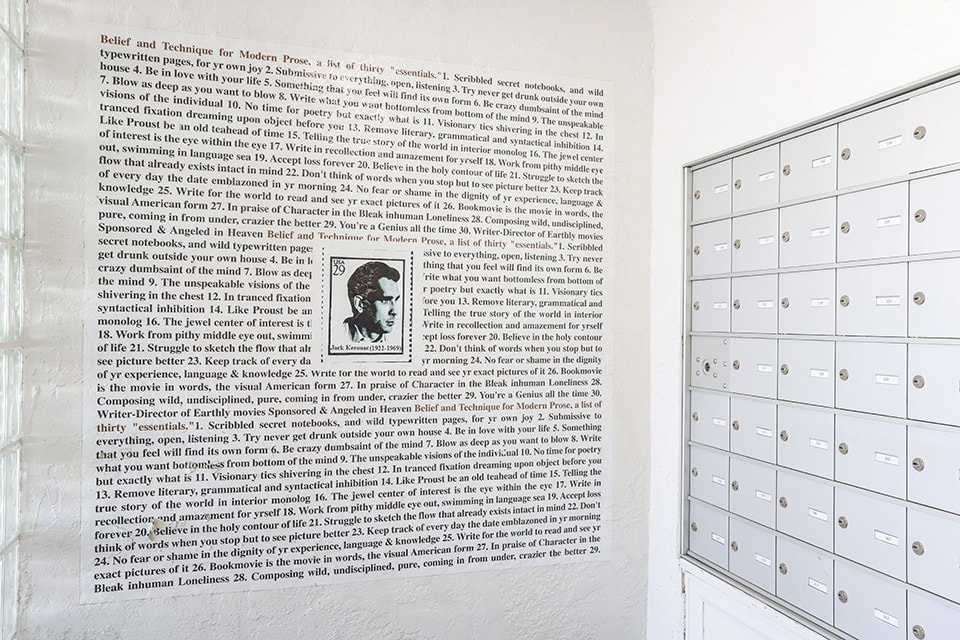 Belief and Technique for Modern Prose, a list of thirty "essentials."1. Scribbled secret notebooks, and wild
typewritten pages, for yr own joy 2. Submissive to everything, open, listening 3. Try never get drunk outside your own
house 4. Be in love with your life 5. Something that you feel will find its own form 6. Be crazy dumbsaint of the mind
7. Blow as deep as you want to blow 8. Write what you want bottomless from bottom of the mind 9. The unspeakable
visions of the individual 10. No time for poetry but exactly what is 11. Visionary tics shivering in the chest 12. In
tranced fixation dreaming upon object before you 13. Remove literary, grammatical and syntactical inhibition 14.
Like Proust be an old teahead of time 15. Telling the true story of the world in interior monolog 16. The jewel center
of interest is the eye within the eye 17. Write in recollection and amazement for yrself 18. Work from pithy middle eye
out, swimming in language sea 19. Accept loss forever 20. Believe in the holy contour of life 21. Struggle to sketch the
flow that already exists intact in mind 22. Don't think of words when you stop but to see picture better 23. Keep track
of every day the date emblazoned in yr morning 24. No fear or shame in the dignity of yr experience, language &
knowledge 25. Write for the world to read and see yr exact pictures of it 26. Bookmovie is the movie in words, the
visual American form 27. In praise of Character in the Bleak inhuman Loneliness 28. Composing wild, undisciplined,
pure, coming in from under, crazier the better 29. You're a Genius all the time 30. Writer-Director of Earthly movies
Sponsored & Angeled in Heaven Belief and Technique for Modern Prose, a list of thirty "essentials."1. Scribbled
secret notebooks, and wild typewritten page sive to everything, open, listening 3. Try never
get drunk outside your own house 4. Be in lo thing that you feel will find its own form 6. Be
crazy dumbsaint of the mind 7. Blow as deep rite what you want bottomless from bottom of
the mind 9. The unspeakable visions of the r poetry but exactly what is 11. Visionary tics
shivering in the chest 12. In tranced fixation ore you 13. Remove literary, grammatical and
syntactical inhibition 14. Like Proust be an Telling the true story of the world in interior
monolog 16. The jewel center of interest is t Write in recollection and amazement for yrself
18. Work from pithy middle eye out, swimm cept loss forever 20. Believe in the holy contour
of life 21. Struggle to sketch the flow that alr 22. Don't think of words when you stop but to
see picture better 23. Keep track of every da yr morning 24. No fear or shame in the dignity
USA
29
Jack Kerouac(1922-1969)
of yr experience, language & knowledge 25. Write for the world to read and see yr exact pictures of it 26. Bookmovie
is the movie in words, the visual American form 27. In praise of Character in the Bleak inhuman Loneliness 28.
Composing wild, undisciplined, pure, coming in from under, crazier the better 29. You're a Genius all the time 30.
Writer-Director of Earthly movies Sponsored & Angeled in Heaven Belief and Technique for Modern Prose, a list of
thirty "essentials."1. Scribbled secret notebooks, and wild typewritten pages, for yr own joy 2. Submissive to
everything, open, listening 3. Try never get drunk outside your own house 4. Be in love with your life 5. Something
that you feel will find its own form 6. Be crazy dumbsaint of the mind 7. Blow as deep as you want to blow 8. Write
what you want bottomless from bottom of the mind 9. The unspeakable visions of the individual 10. No time for poetry
but exactly what is 11. Visionary tics shivering in the chest 12. In tranced fixation dreaming upon object before you
13. Remove literary, grammatical and syntactical inhibition 14. Like Proust be an old teahead of time 15. Telling the
true story of the world in interior monolog 16. The jewel center of interest is the eye within the eye 17. Write in
recollection and amazement for yrself 18. Work from pithy middle eye out, swimming in language sea 19. Accept loss
forever 20. Believe in the holy contour of life 21. Struggle to sketch the flow that already exists intact in mind 22. Don't
think of words when you stop but to see picture better 23. Keep track of every day the date emblazoned in yr morning
24. No fear or shame in the dignity of yr experience, language & knowledge 25. Write for the world to read and see yr
exact pictures of it 26. Bookmovie is the movie in words, the visual American form 27. In praise of Character in the
Bleak inhuman Loneliness 28. Composing wild, undisciplined, pure, coming in from under, crazier the better 29.